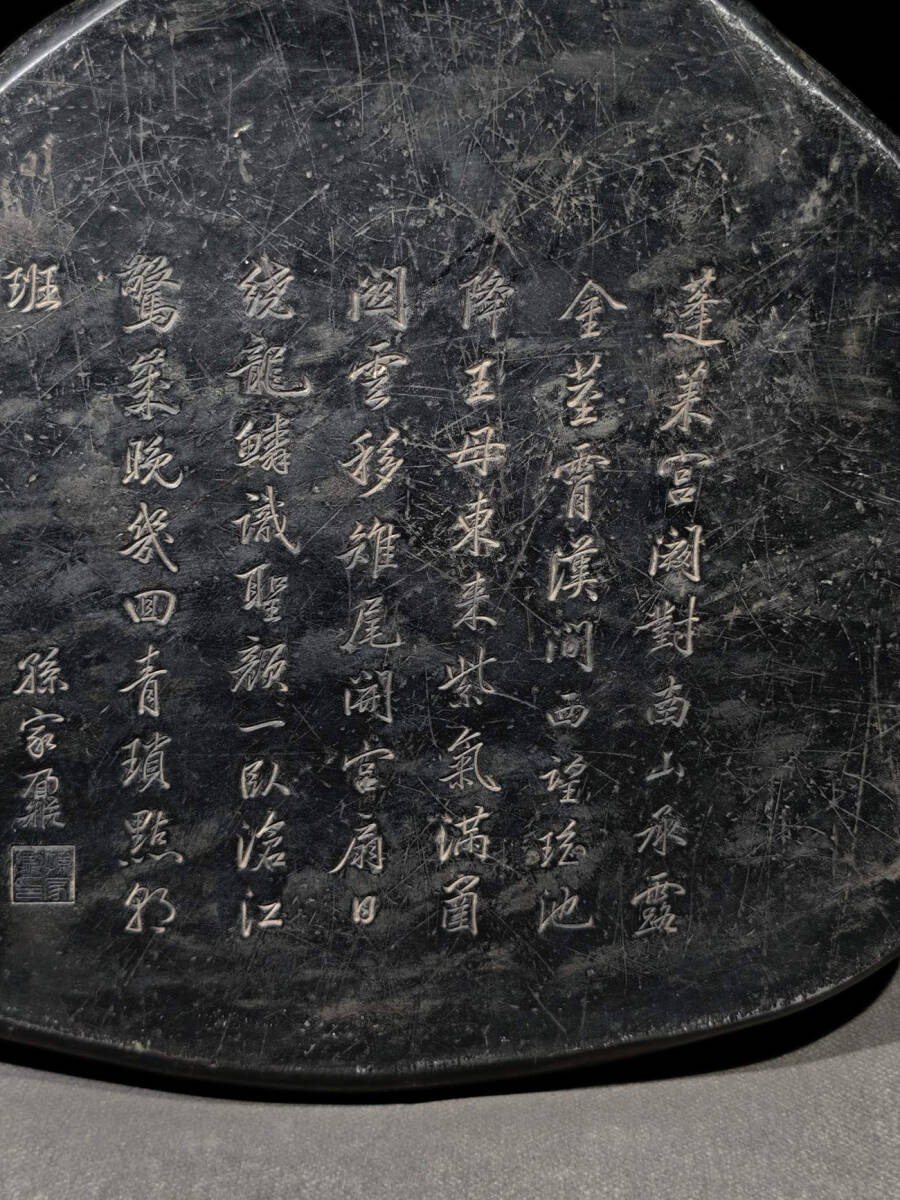 蓬萊宮闕對南山承露
金莖霄漢間西望瑤池
降王母東来紫氣滿圅
関雲移雉尾開宮扇日
繞龍鱗識聖顏一臥滄江
驚歲晚幾回青瑣點朝
班
孫家鼐